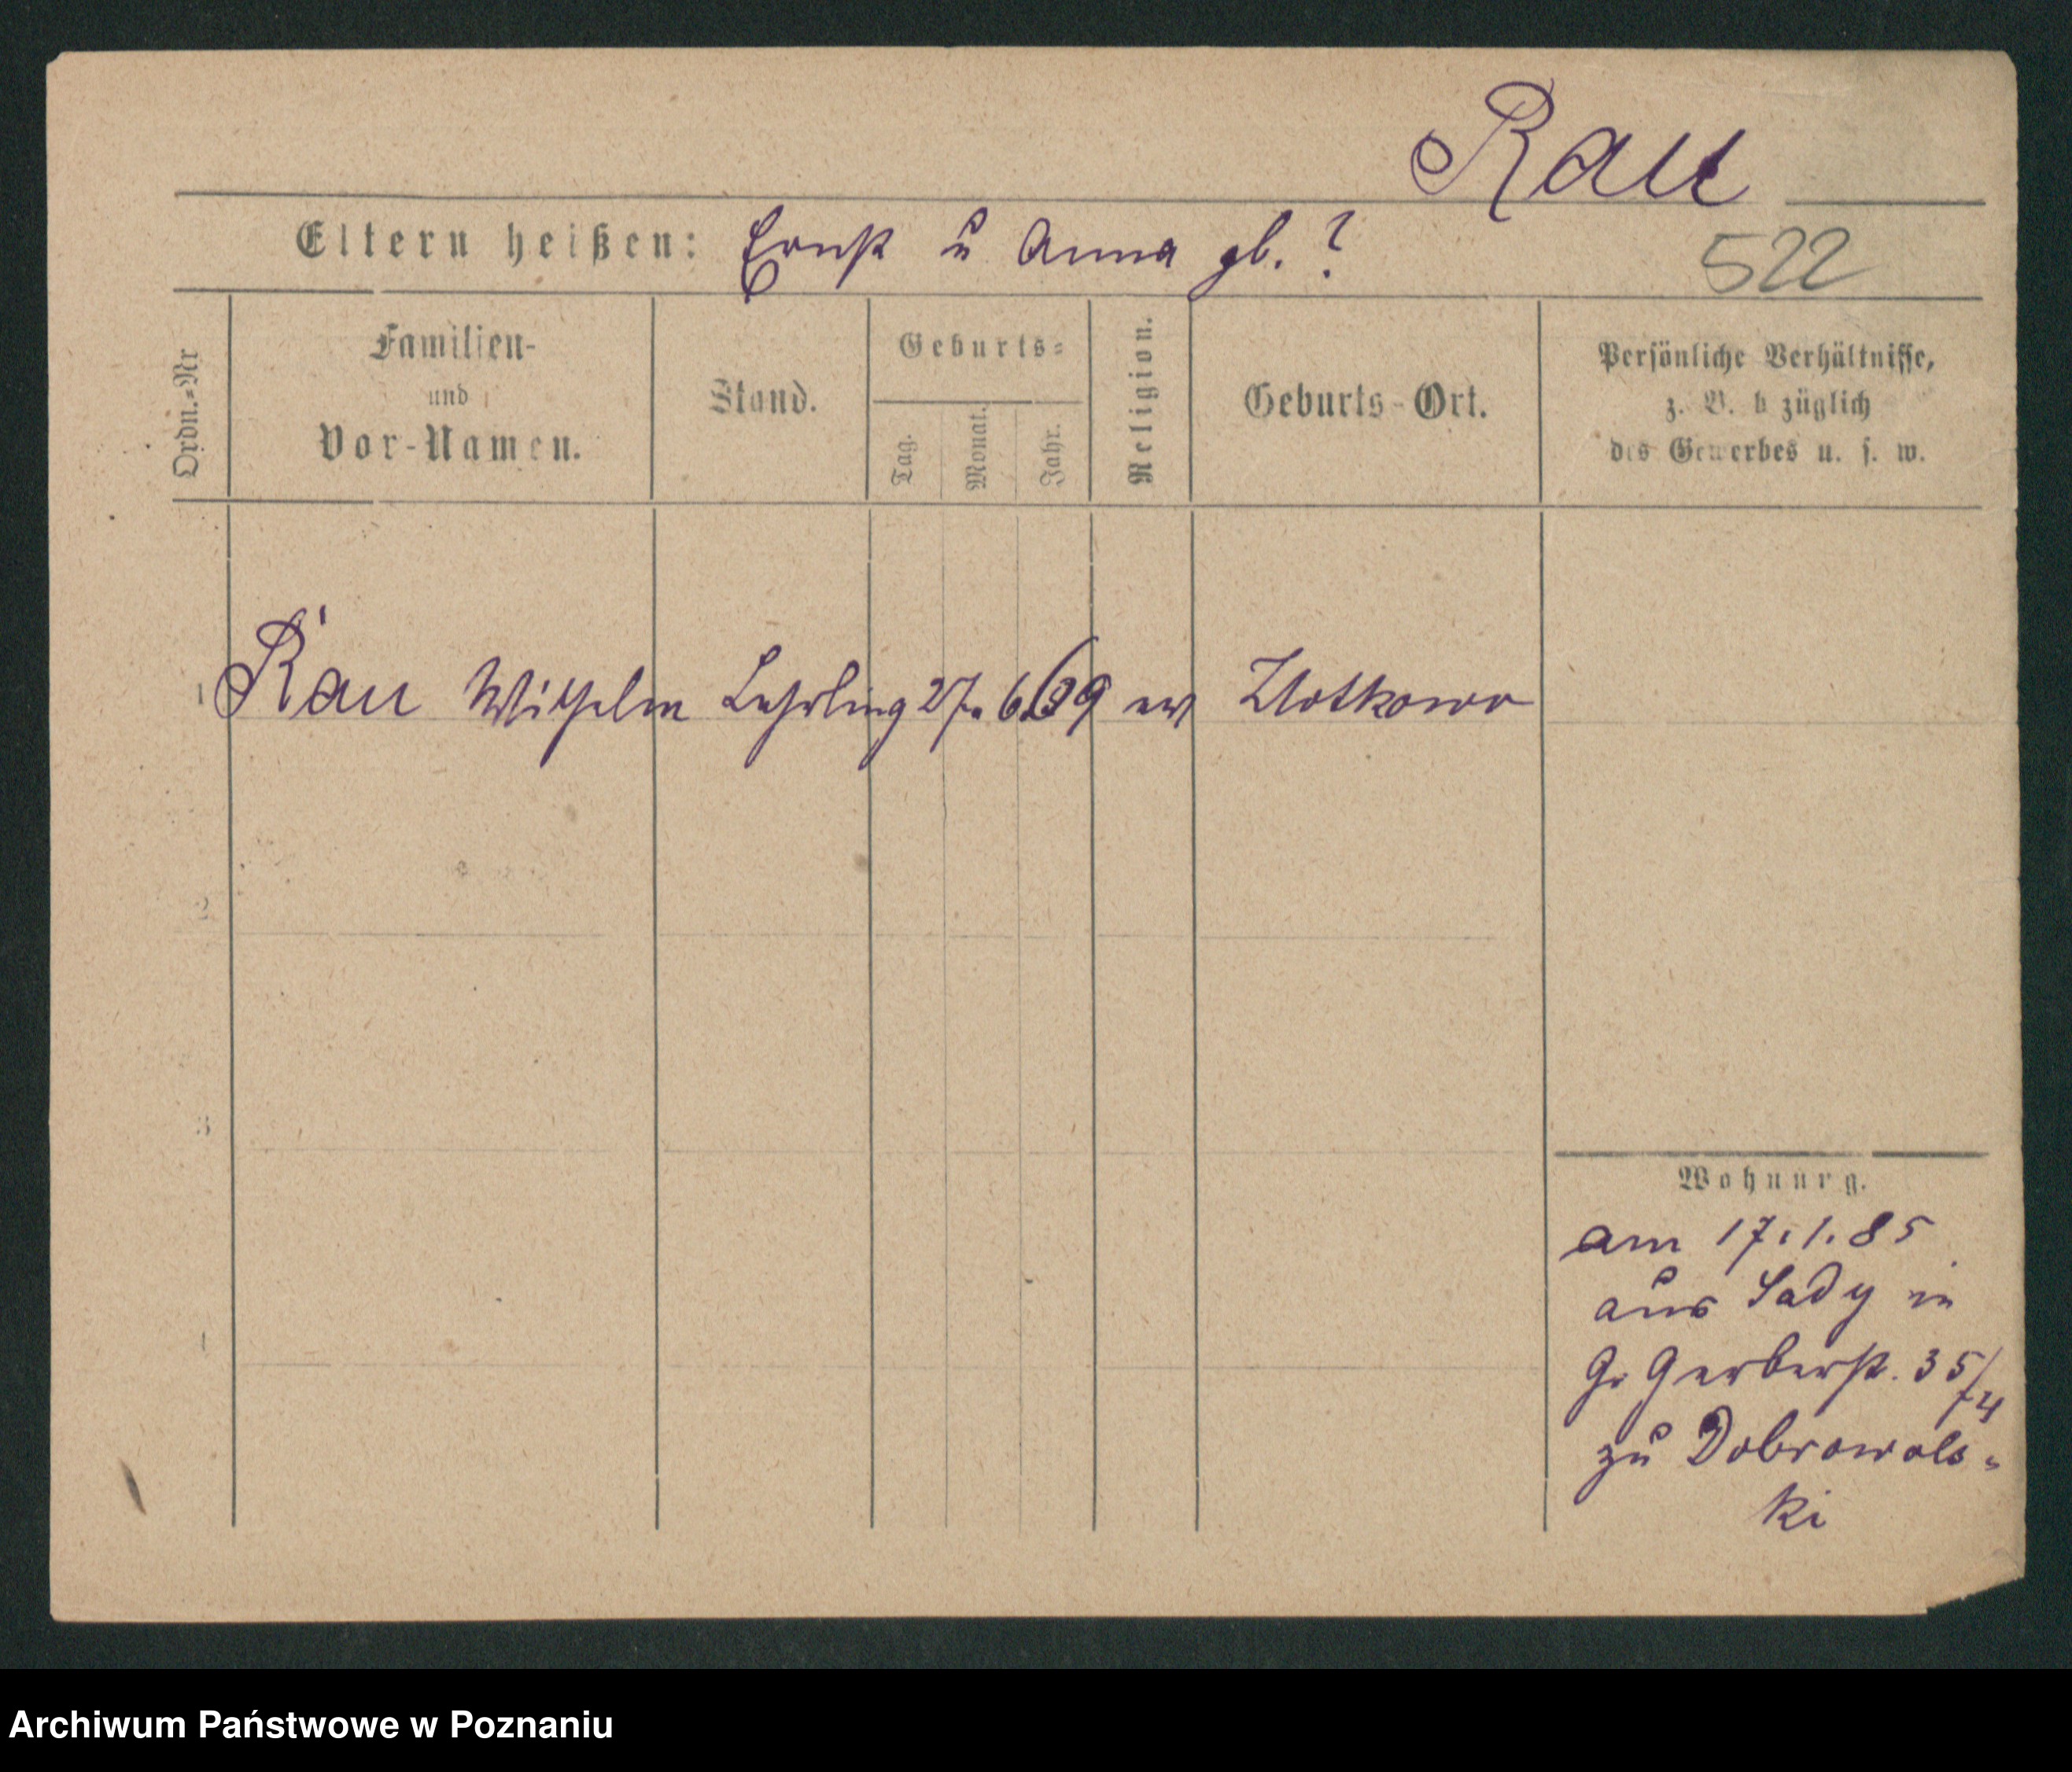 Rau
Eltern heißen: Ernst u Anna gb. ?
522
Ordn.-Nr
Familien-
und
Vor-Namen.
Stand.
Geburts-
Tag.
Monat.
Jahr.
Religion.
Geburts-Ort.
Persönliche Verhältnisse,
z. B. b züglich
des Gewerbes u. s. w.
1 Rau Wilhelm Lehrling 27. 6. 69 ev Zlotkowo
2
3
Wohnung.
am 17.1.85
aus Sady in
Gr Gerberst. 35/
4
zu Dobrowols-
ki
Archiwum Państwowe w Poznaniu